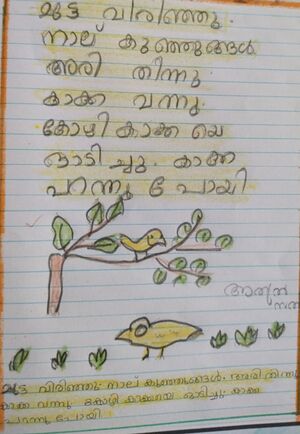 മുട്ട വിരിഞ്ഞു.
നാല് കുഞ്ഞുങ്ങൾ
അരി തിന്നു
കാക്ക വന്നു.
കോഴി കാക്ക യെ
ഓടി ച്ചു. കാക്ക
പറന്നു പോയി
മുട്ട വിരിഞ്ഞു നാല് കുഞ്ഞുങ്ങൾ. അരി തിന്നു
കാക്ക വന്നു. കോഴി കാക്കയെ ഓടിച്ചു കാക്ക
പറന്നു പോയി